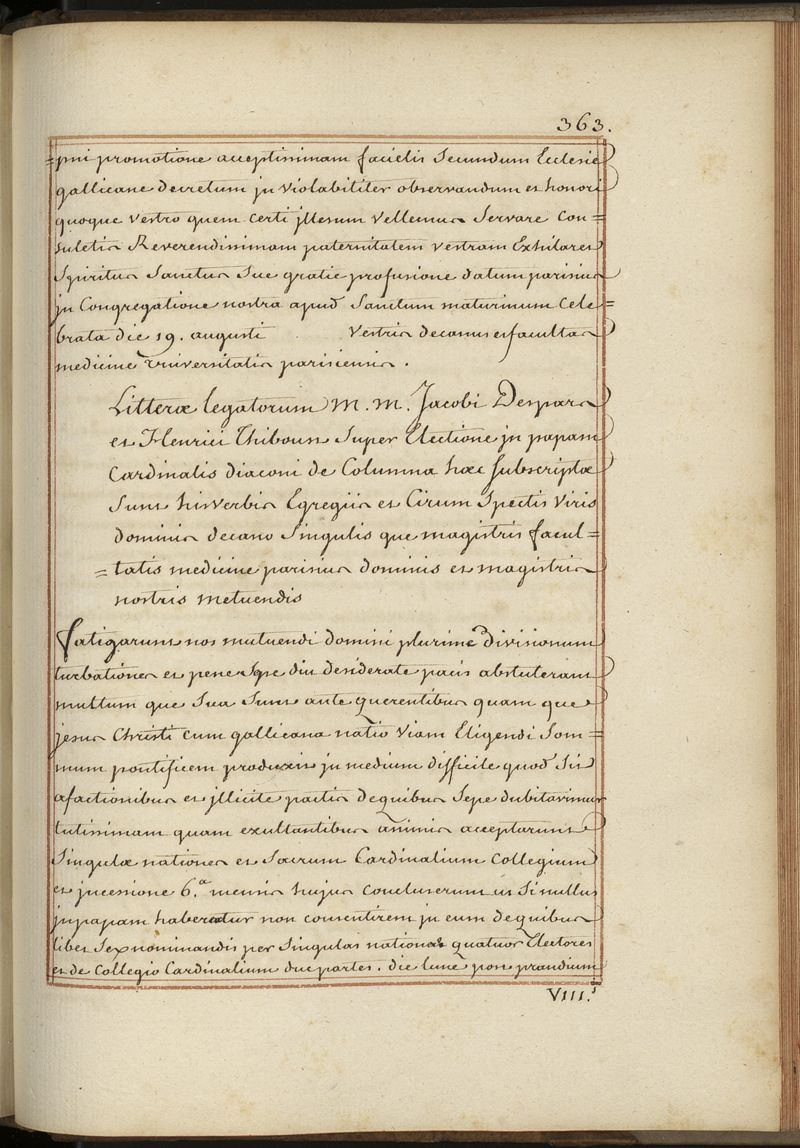 363.
=pmi promotione acceptissimam facietis Secundum Ecclesie
gallicane decretum jn violabititer observandum et honori
quoque vestro quem certi jllesum vellemus Servare Con=
suletis Reverendissimam paternitatem vestram Exhilaret
Spiritus Sanctus Sue gratie profusione datum parisius
jn Congregatione nostra apud Sanctum maturinum Cele=
brata die 19. augusti Vestris decanus et facultas
medicine Vniversitatis parisiensis.
Litteræ legatorum M. M. Jacobi Despars
et Henrici Thiboust Super Electione jn papam
Cardinalis diaconi de Columna hæc Subscriptæ
Sunt his verbis Egregiis et Cirum Spectis Viris
dominis decano Singulis que magistris facul=
=tatis medicine parisius dominis et magistris
nostris metuendis
Fatigarunt nos mutuendi domini plurime divisionum
turbationes et pene Spe diu desiderate pacis abstuterant
multum que Sua Sunt ante querentibus quam que
jesus Christi cum gallicana natio Viam Eligendi Som=
mum pontificem produxit jn medium difficile quod Sit
afactionibus et jllicite pactis dequibus Sepe dubitavimus
tutissimam quam exultantibus animis acceptarunt
Singulæ nationes et Sacrum Cardinalium Collegium
et jncessione 6.a mensis hujus concluserunt ut Si nullus
jnpapam haberetur non consentirent jn eum dequibus
libet Sex nominandis per Singulas nationes quatuor Electores
et de Collegio Cardinalium due partes. die lune post prandium
VIII.j